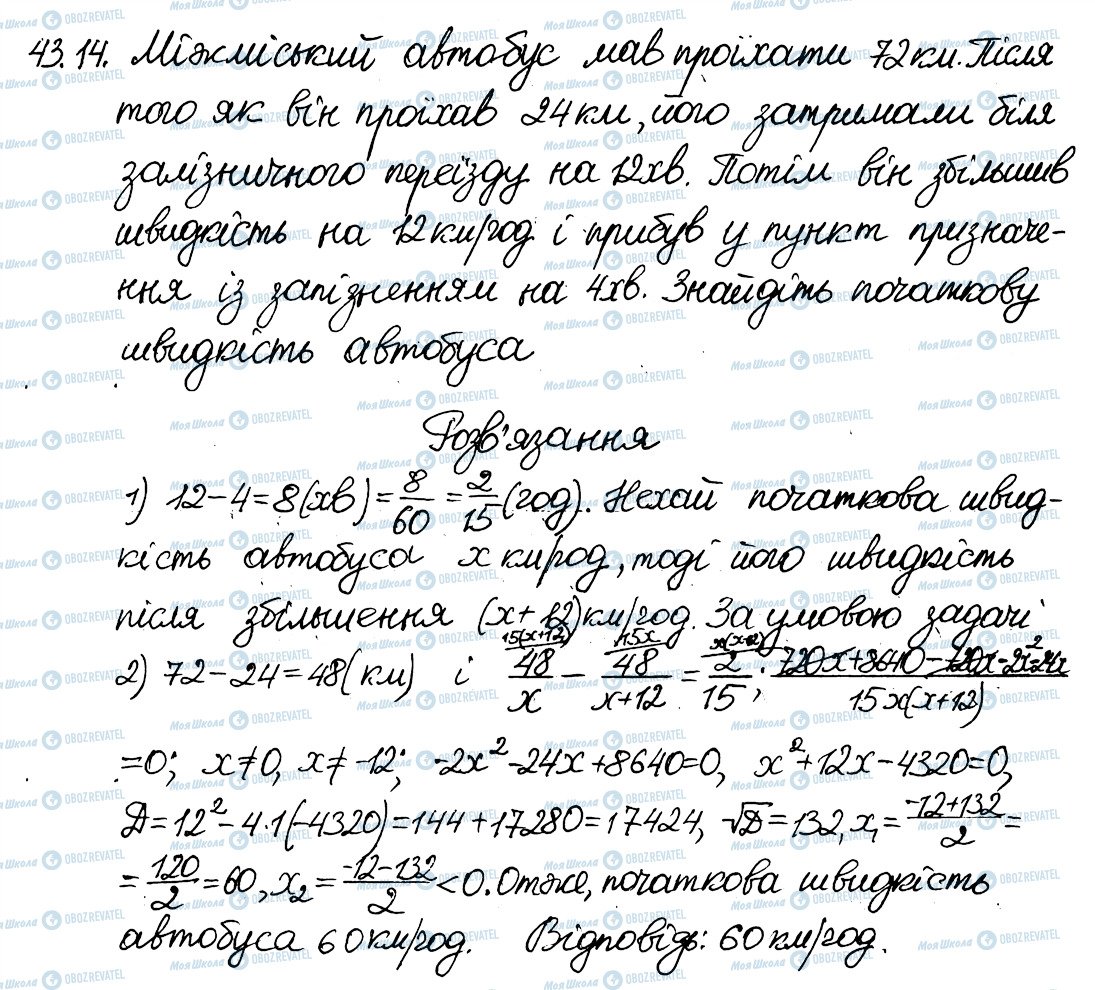 43.14. Міжміський автобус мав проїхати 72км. Після
того як він проїхав 24км, його затримали біля
залізничного переїзду на 12хв. Потім він збільшив
швидкість на 12км/год і прибув у пункт призначе-
ння із запізненням на 4хв. Знайдіть початкову
швидкість автобуса
Розв'язання
1) 12-4=8(хв)=8/60=2/15(год). Нехай початкова швид-
кість автобуса x км/год, тоді його швидкість
після збільшення (x+12)км/год. За умовою задачі
2) 72-24=48(км) і 15(x+12) 48/x - 15x 48/x+12 = x(x+12) 2/15; 720x+8640-720x-2x²-24x/15x(x+12)
=0; x≠0, x≠-12; -2x²-24x+8640=0, x²+12x-4320=0,
D=12²-4·1(-4320)=144+17280=17424, √D=132, x₁=-12+132/2=
=120/2=60, x₂=-12-132/2<0. Отже, початкова швидкість
автобуса 60км/год. Відповідь: 60км/год.